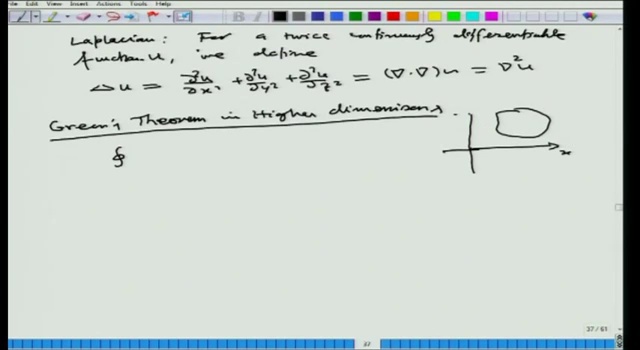 File Edit View Insert Actions Tools Help
Laplacian: For a twice continuously differentiable
function u, we define
Δu = ∂²u/∂x² + ∂²u/∂y² + ∂²u/∂z² = (∇·∇)u = ∇²u
Green's Theorem in Higher dimensions.
∮
x
37 / 61
37